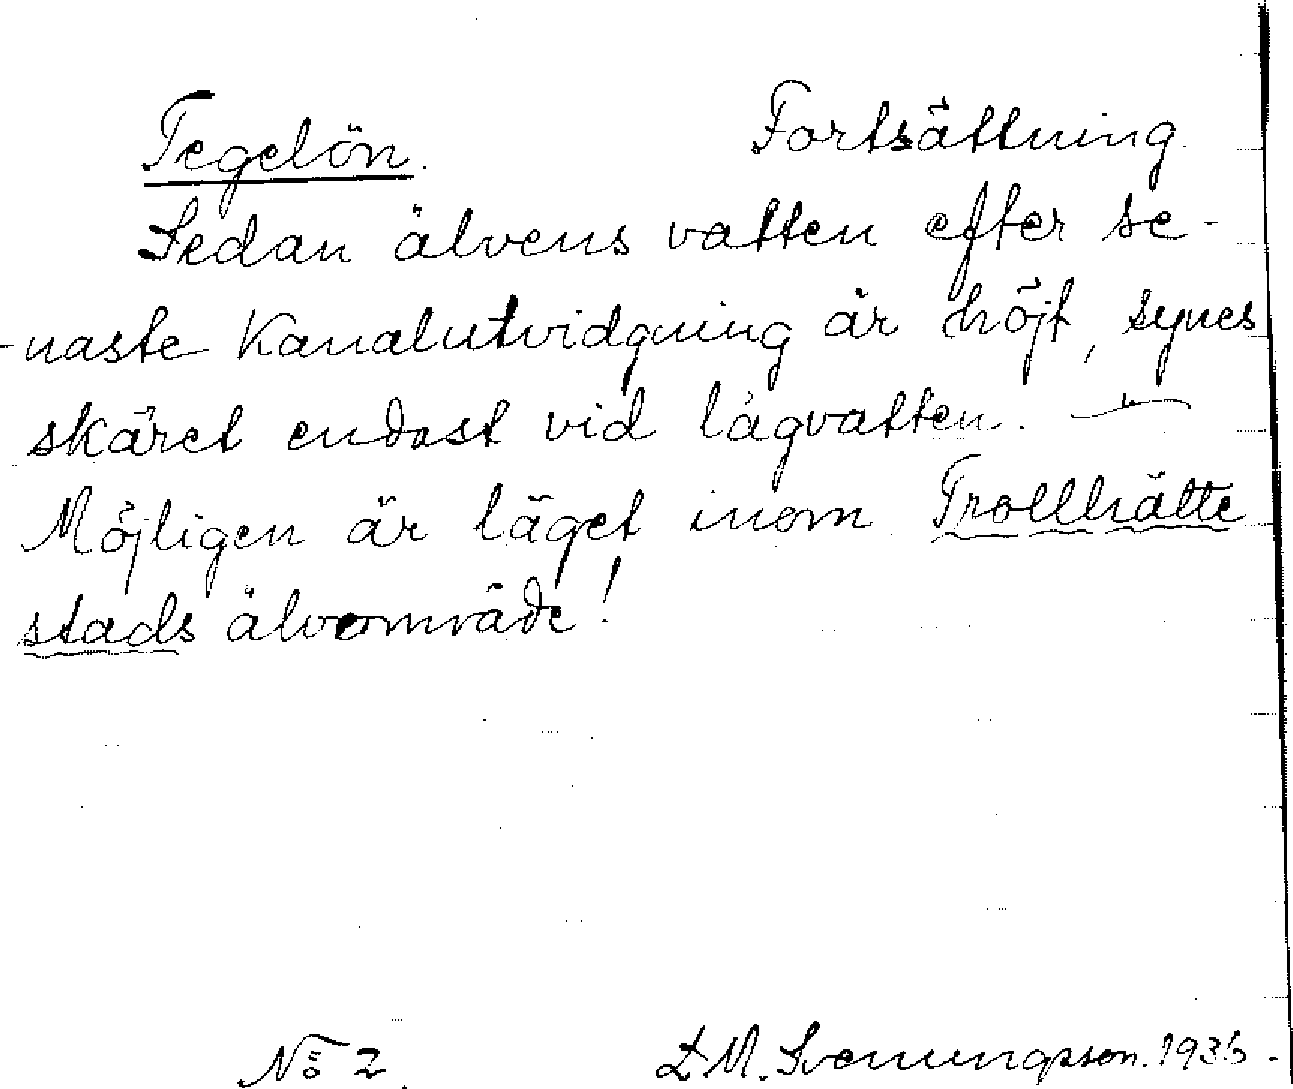 Tegelön. Fortsättning
Sedan älvens vatten efter se-
-naste Kanalutvidgning är höjt, synes
skäret endast vid lågvatten. —
Möjligen är läget inom Trollhätte
stads älvområde!
No 2. D.M. Svenungsson. 1936.